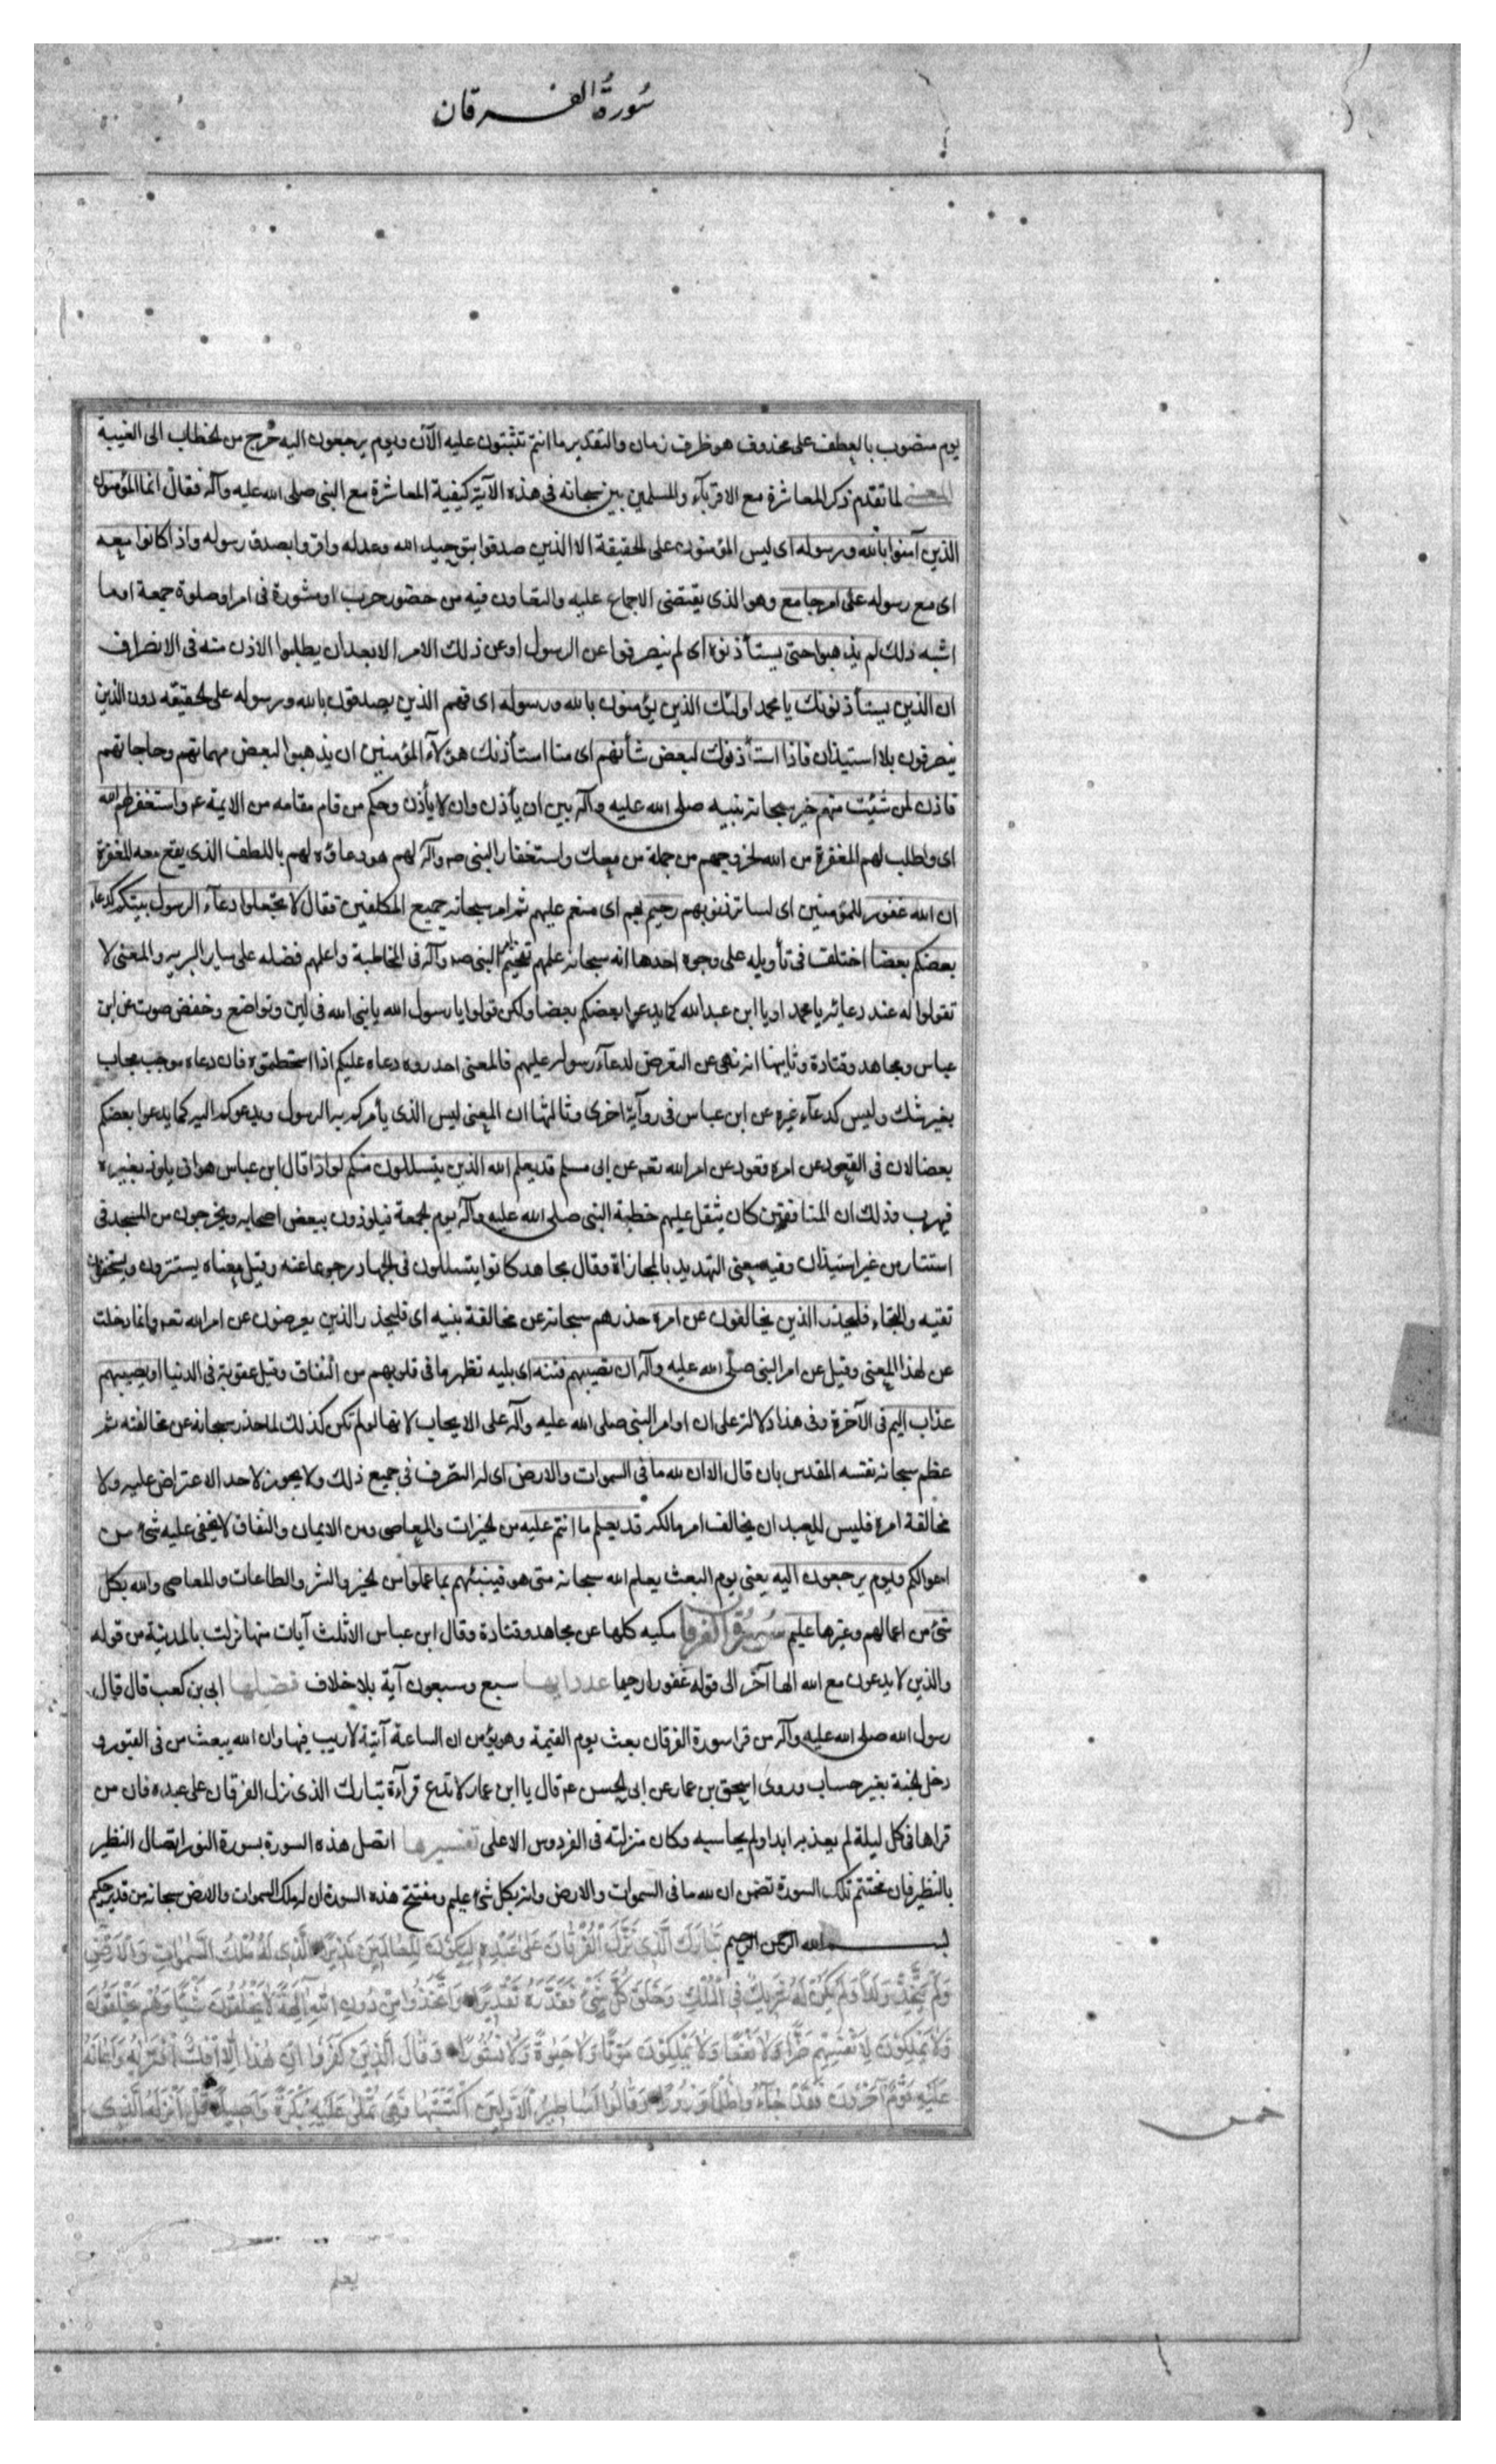 سُورةُ الفرقان
يوم منصوب بالعطف على محذوف هو ظرف زمان والتقدير ما انتم تثبتون عليه الآن ويوم يرجعون اليه خرج من الخطاب الى الغيبة
المعنى لما تقدم ذكر المعاشرة مع الاقربآء والمسلمين بين سبحانه فى هذه الآية كيفية المعاشرة مع النبى صلى الله عليه وآله فقال انما المؤمنون
الذين آمنوا بالله ورسوله اى ليس المؤمنون على الحقيقة الا الذين صدقوا بتوحيد الله وعدله واقروا بصدق رسوله واذا كانوا معه
اى مع رسوله على امر جامع وهو الذى يقتضى الاجماع عليه والتعاون فيه من حضور حرب او مشورة فى امر او صلوة جمعة او ما
اشبه ذلك لم يذهبوا حتى يستأذنوه اى لم ينصرفوا عن الرسول او عن ذلك الامر الا بعد ان يطلبوا الاذن منه فى الانصراف
ان الذين يستأذنونك يا محمد اولئك الذين يؤمنون بالله ورسوله اى فهم الذين يصدقون بالله ورسوله على الحقيقه دون الذين
ينصرفون بلا استيذان فاذا استأذنوك لبعض شأنهم اى متا استأذنك هؤلآء المؤمنين ان يذهبوا لبعض مهماتهم وحاجاتهم
فاذن لمن شئت منهم خير سبحانه نبيه صلى الله عليه وآله بين ان يأذن وان لا يأذن وحكم من قام مقامه من الايمة ع واستغفر لهم الله
اى واطلب لهم المغفرة من الله لخروجهم من جملة من معك واستغفار النبى ص وآله لهم هو دعاؤه لهم باللطف الذى يقع معه المغفرة
ان الله غفور للمؤمنين اى لساتر ذنوبهم رحيم بهم اى منعم عليهم ثم امر سبحانه جميع المكلفين فقال لا تجعلوا دعآء الرسول بينكم كدعاء
بعضكم بعضا اختلف فى تأويله على وجوه احدها انه سبحانه علمهم تفخيم النبى ص وآله فى المخاطبة واعلمهم فضله على ساير البريه والمعنى لا
تقولوا له عند دعائه يا محمد او يا ابن عبدالله كما يدعوا بعضكم بعضا ولكن قولوا يا رسول الله يا نبى الله فى لين وتواضع وخفض صوت عن ابن
عباس ومجاهد وقتادة وثانيها انه نهى عن التعرض لدعآء رسوله عليهم فالمعنى احذروه دعاه عليكم اذا اسخطتموه فان دعاه موجب مجاب
بغير شك وليس كدعآء غيره عن ابن عباس فى روآية اخرى وثالثها ان المعنى ليس الذى يأمركم به الرسول ويدعوكم اليه كما يدعوا بعضكم
بعضا لان فى القعود عن امره قعود عن امر الله تعم عن ابى مسلم قد يعلم الله الذين يتسللون منكم لواذا قال ابن عباس هو ان يلوذ بغيره
فيهرب وذلك ان المنافقين كان يثقل عليهم خطبة النبى صلى الله عليه وآله يوم الجمعة فيلوذون ببعض اصحابه ويخرجون من المسجد فى
استتار من غير استيذان وفيه معنى التهديد بالمجازاة وقال مجاهد كانوا يتسللون فى الجهاد رجوعا عنه وقيل معناه يستترون ويستخفون
تقيه والتجاء فليحذر الذين يخالفون عن امره حذرهم سبحانه عن مخالفة نبيه اى فليحذر الذين يعرضون عن امر الله تعم وانما دخلت
عن لهذا المعنى وقيل عن امر النبى صلى الله عليه وآله ان تصيبهم فتنه اى بليه تظهر ما فى قلوبهم من النفاق وقيل عقوبة فى الدنيا او يصيبهم
عذاب اليم فى الآخرة وفى هذا دلالة على ان اوامر النبى صلى الله عليه وآله على الايجاب لانها لو لم تكن كذلك لما حذر سبحانه عن مخالفته ثم
عظم سبحانه نفسه المقدس بان قال الا ان لله ما فى السموات والارض اى له التصرف فى جميع ذلك ولا يجوز لاحد الاعتراض عليه ولا
مخالفة امره فليس للعبد ان يخالف امر مالكه قد يعلم ما انتم عليه من الخيرات والمعاصى ومن الايمان والنفاق لا يخفى عليه شئ من
احوالكم ويوم يرجعون اليه يعنى يوم البعث يعلم الله سبحانه متى هو فينبئهم بما عملوا من الخير والشر والطاعات والمعاصى والله بكل
شئ من اعمالهم وغيرها عليم سورة الفرقان مكيه كلها عن مجاهد وقتادة وقال ابن عباس الا ثلث آيات منها نزلت بالمدينة من قوله
والذين لا يدعون مع الله الها آخر الى قوله غفورا رحيما عدد ايها سبع وسبعون آية بلا خلاف فضلها ابى بن كعب قال قال
رسول الله صلى الله عليه وآله من قرا سورة الفرقان بعث يوم القيمة وهو يؤمن ان الساعة آتية لا ريب فيها وان الله يبعث من فى القبور و
دخل الجنة بغير حساب وروى اسحق بن عمار عن ابى الحسن ع قال يا ابن عمار لا تدع قرآءة تبارك الذى نزل الفرقان على عبده فان من
قراها فى كل ليلة لم يعذبه ابدا ولم يحاسبه وكان منزلته فى الفردوس الاعلى تفسيرها اتصل هذه السورة بسورة النور اتصال النظير
بالنظير فان مختتم تلك السورة تضمن ان لله ما فى السموات والارض وانه بكل شئ عليم ومفتتح هذه السورة ان له ملك السموات والارض سبحانه من قدير حكيم
بسم الله الرحمن الرحيم تَبَارَكَ الَّذِى نَزَّلَ الْفُرْقَانَ عَلَى عَبْدِهِ لِيَكُونَ لِلْعَالَمِينَ نَذِيرًا الَّذِى لَهُ مُلْكُ السَّمٰوَاتِ وَالْاَرْضِ
وَلَمْ يَتَّخِذْ وَلَدًا وَلَمْ يَكُنْ لَهُ شَرِيكٌ فِى الْمُلْكِ وَخَلَقَ كُلَّ شَىْءٍ فَقَدَّرَهُ تَقْدِيرًا وَاتَّخَذُوا مِنْ دُونِهِ اٰلِهَةً لَا يَخْلُقُونَ شَيْئًا وَهُمْ يُخْلَقُونَ
وَلَا يَمْلِكُونَ لِاَنْفُسِهِمْ ضَرًّا وَلَا نَفْعًا وَلَا يَمْلِكُونَ مَوْتًا وَلَا حَيٰوةً وَلَا نُشُورًا وَقَالَ الَّذِينَ كَفَرُوا اِنْ هٰذَا اِلَّا اِفْكٌ افْتَرٰيهُ وَاَعَانَهُ
عَلَيْهِ قَوْمٌ آخَرُونَ فَقَدْ جَآءُوا ظُلْمًا وَزُورًا وَقَالُوا اَسَاطِيرُ الْاَوَّلِينَ اكْتَتَبَهَا فَهِىَ تُمْلٰى عَلَيْهِ بُكْرَةً وَاَصِيلًا قُلْ اَنْزَلَهُ الَّذِى
خمس
يعلم